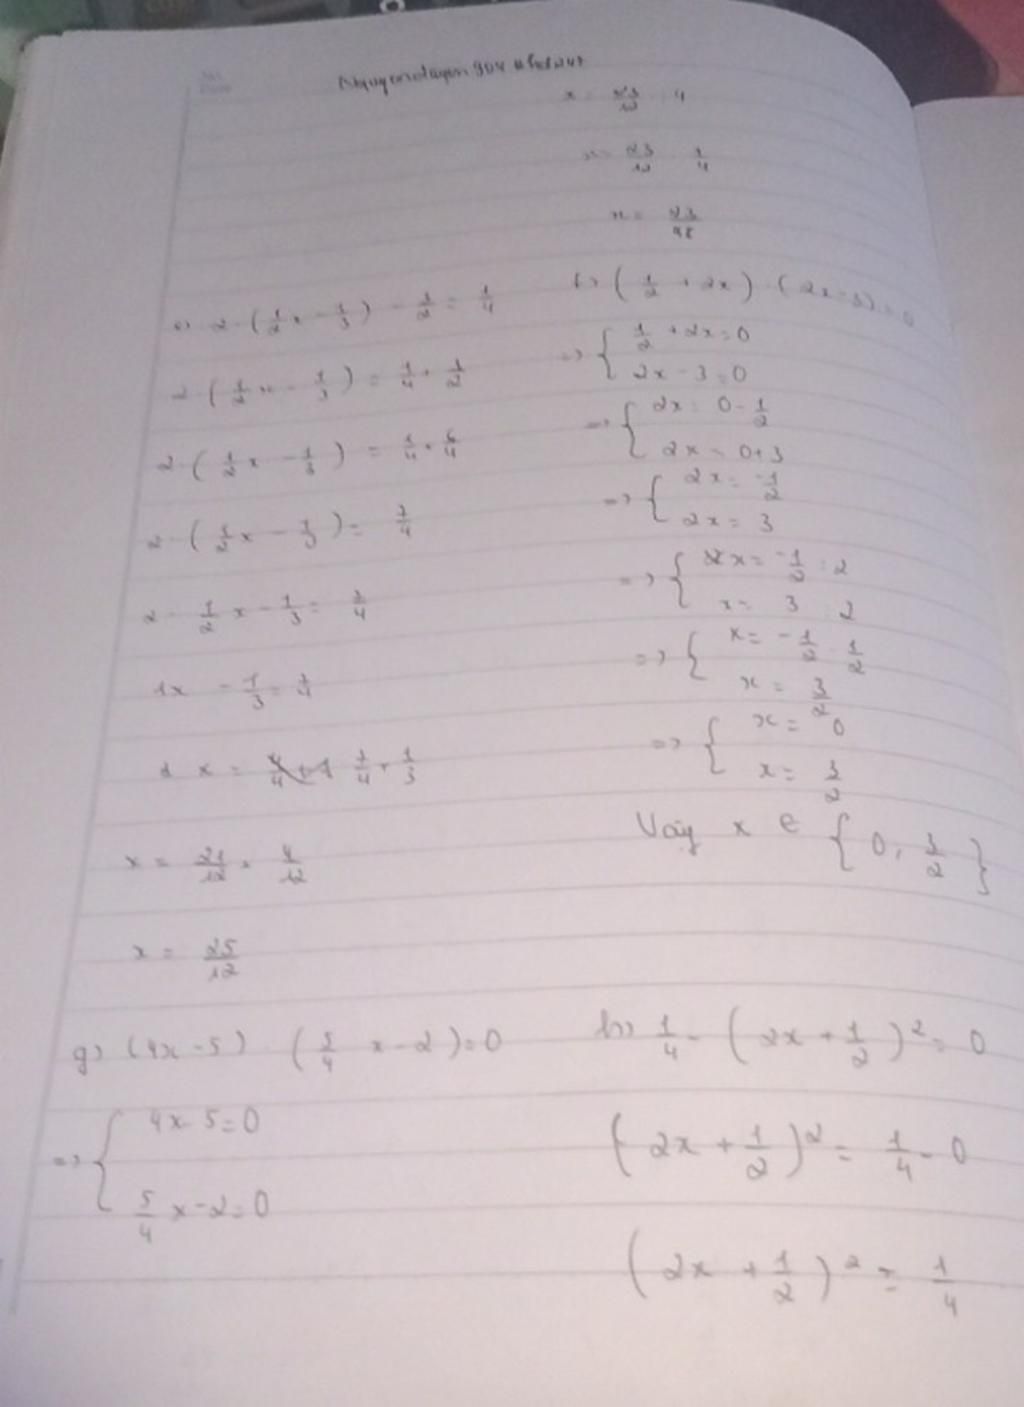 x = 23/12 : 4
x = 23/12 . 1/4
x = 23/48
e) 2 . (1/2 x - 1/3) - 3/2 = 1/4
2 . (1/2 x - 1/3) = 1/4 + 3/2
2 . (1/2 x - 1/3) = 1/4 + 6/4
2 . (1/2 x - 1/3) = 7/4
2 . 1/2 x - 1/3 = 7/4
1x - 1/3 = 7/4
1 x = 7/4 + 1/3
x = 21/12 + 4/12
x = 25/12
f) (1/2 + 2x) . (2x - 3) = 0
=> { 1/2 + 2x = 0
2x - 3 = 0
=> { 2x = 0 - 1/2
2x = 0 + 3
=> { 2x = -1/2
2x = 3
=> { x = -1/2 : 2
x = 3 : 2
=> { x = -1/2 . 1/2
x = 3/2
=> { x = 0
x = 3/2
Vậy x ∈ { 0, 3/2 }
g) (4x - 5) . (5/4 x - 2) = 0
=> { 4x - 5 = 0
5/4 x - 2 = 0
h) 1/4 - (2x + 1/2)² = 0
(2x + 1/2)² = 1/4 - 0
(2x + 1/2)² = 1/4